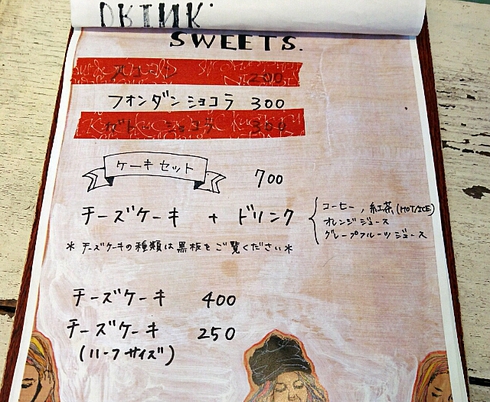 DRINK.
SWEETS.
フォンダンショコラ 300
ケーキセット
700
チーズケーキ + ドリンク
コーヒー, 紅茶(HOT/ICE)
オレンジジュース
グレープフルーツジュース
*チーズケーキの種類は黒板をご覧ください*
チーズケーキ 400
チーズケーキ 250
(ハーフサイズ)